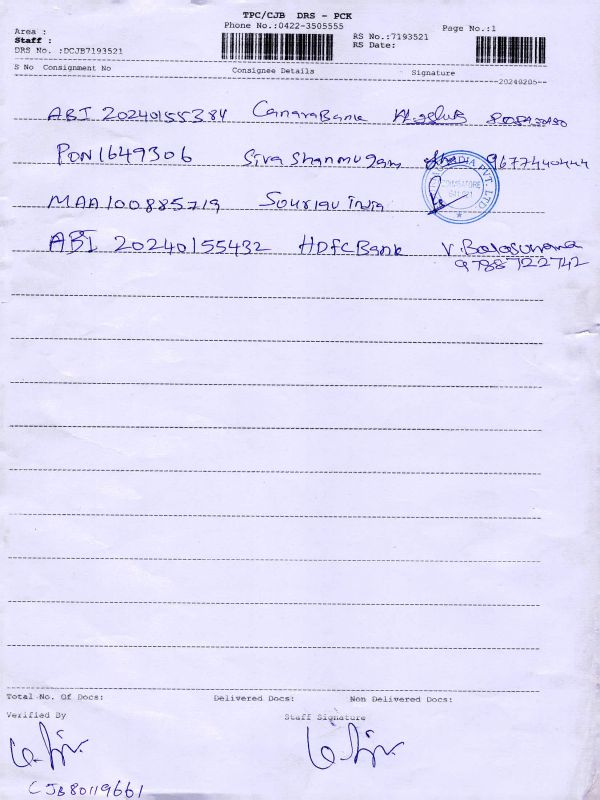 TPC/CJB DRS - PCK
Phone No.:0422-3505555
Area :
Staff :
DRS No. :DCJB7193521
RS No.:7193521
RS Date:
Page No.:1
S No Consignment No Consignee Details Signature
20240205
ABI 20240155384 Canara Bank
PON1649306 Siva Shanmugam 9677440444
MAA100885719 Souriau India
COIMBATORE
ABI 20240155432 HDFC Bank V. Balasubrama
9788722742
Total No. Of Docs: Delivered Docs: Non Delivered Docs:
Verified By Staff Signature
CJB80119661